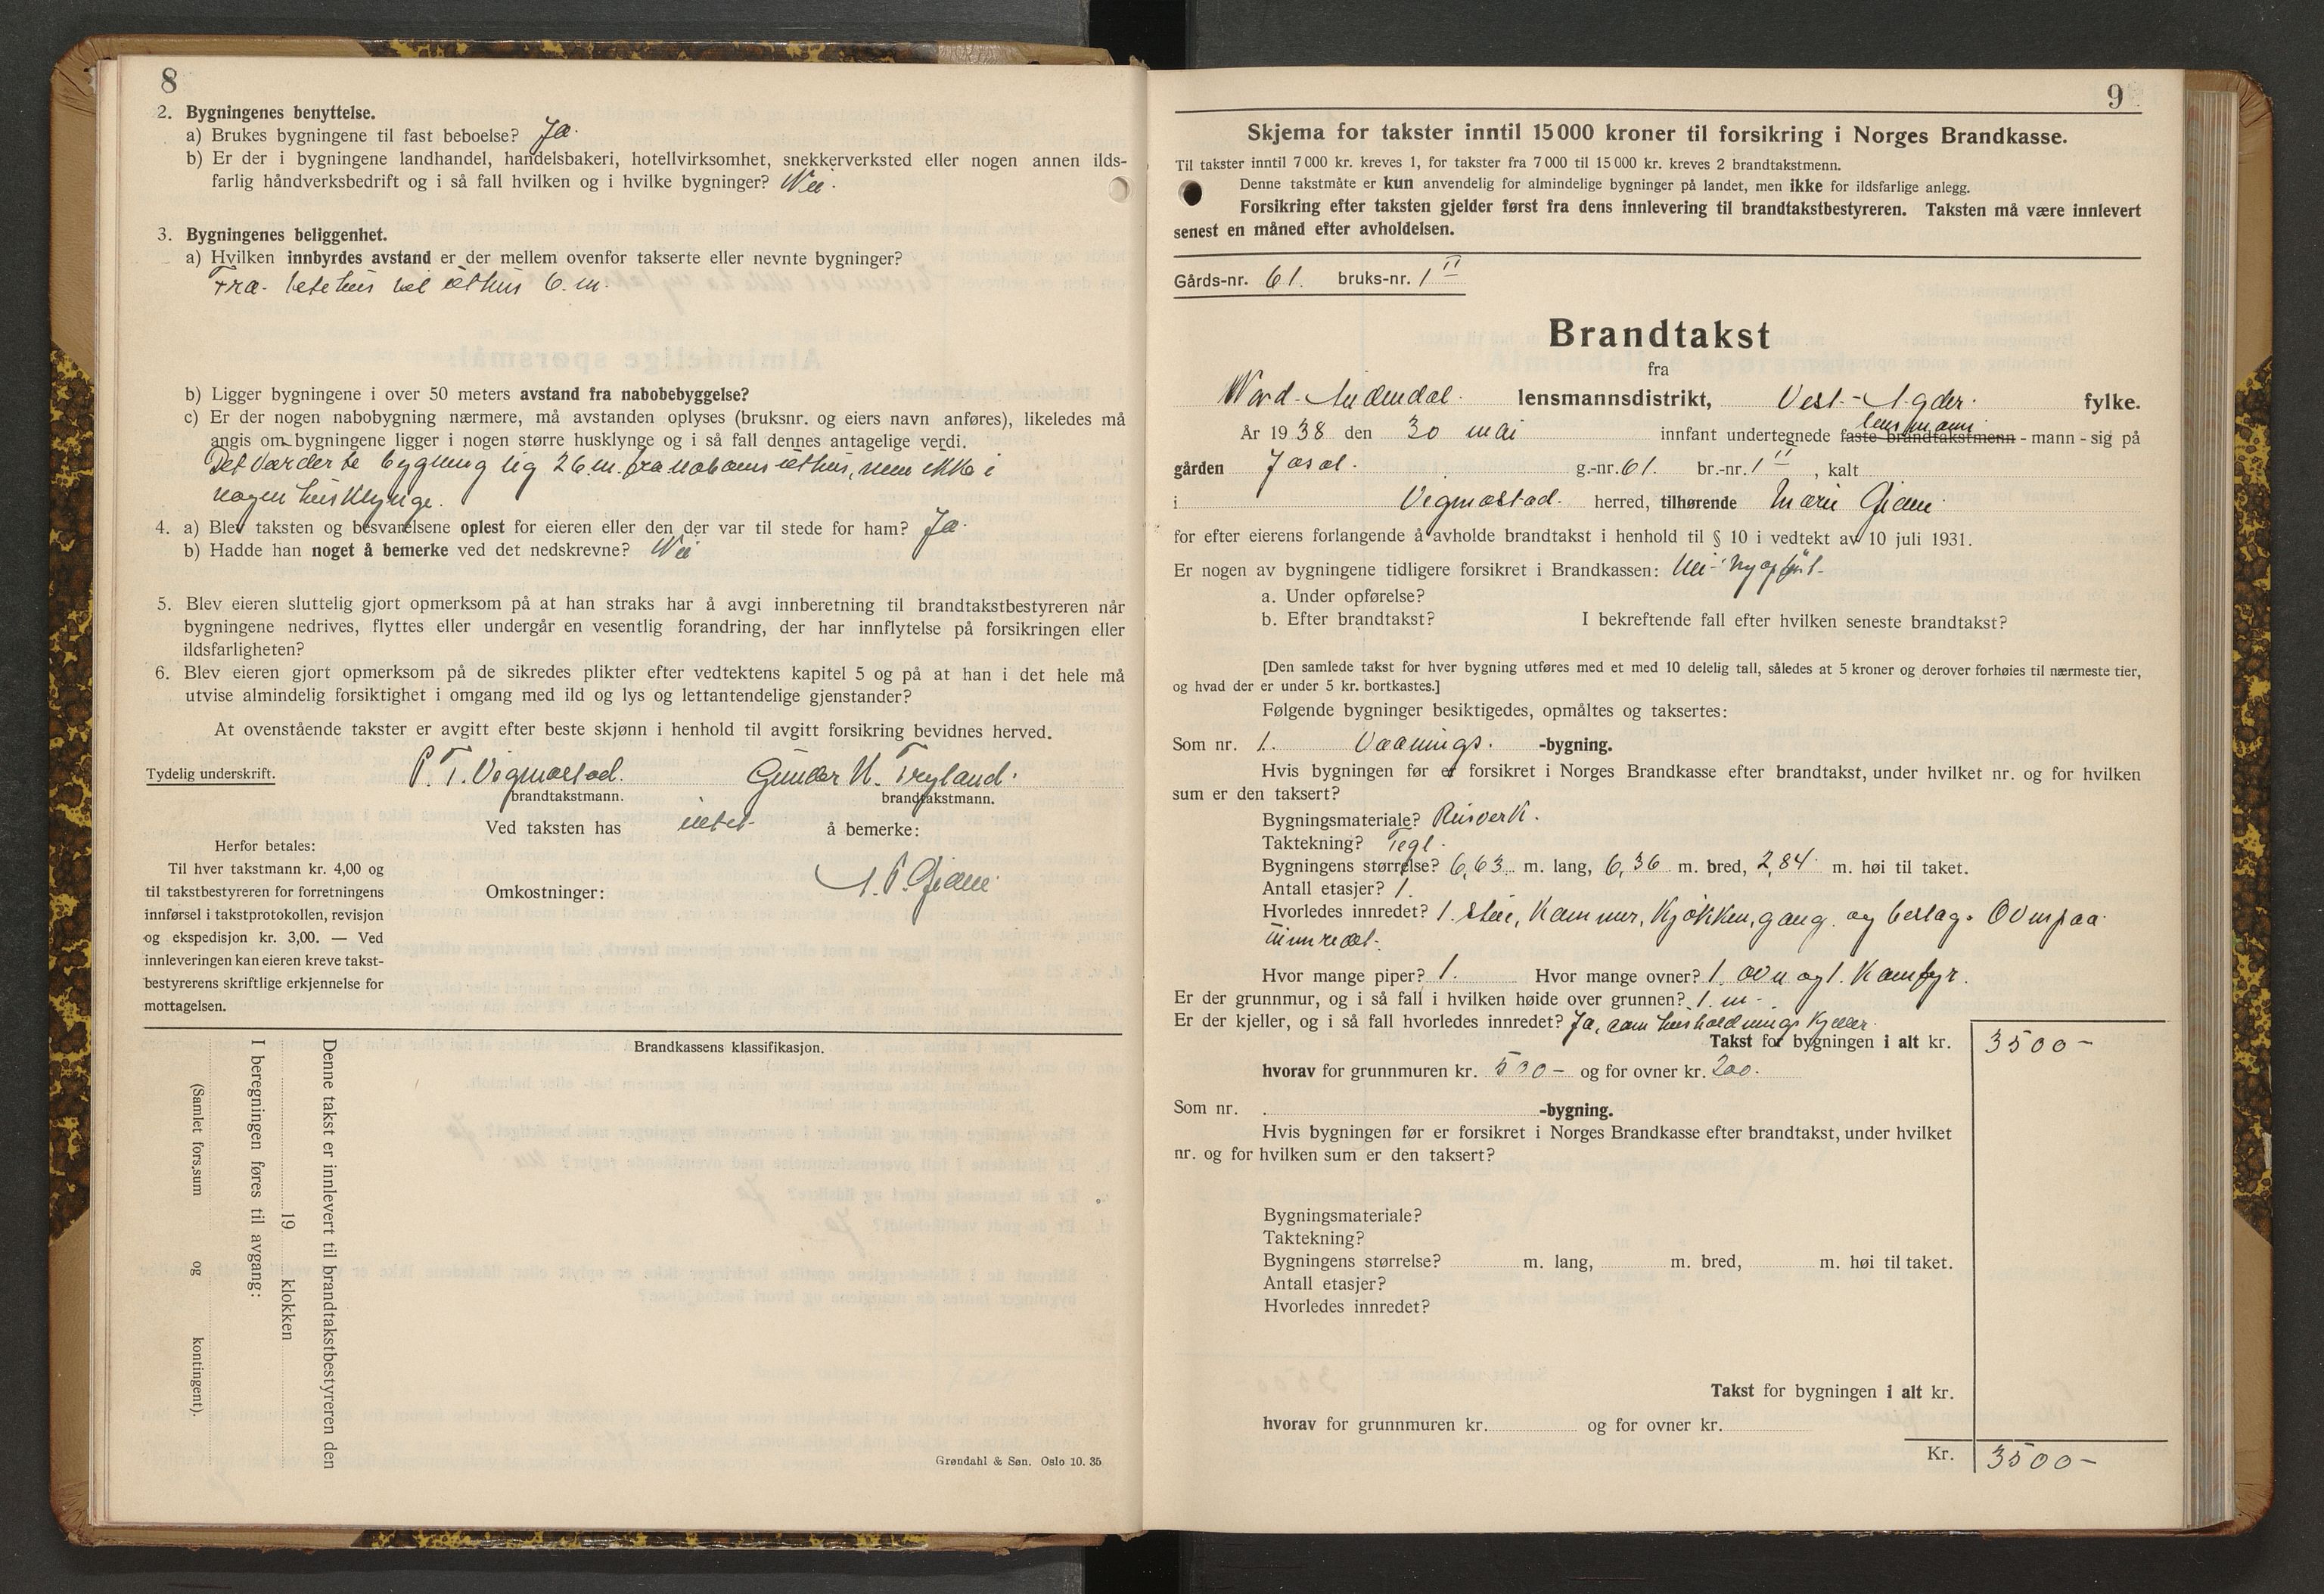 8
2. Bygningenes benyttelse.
a) Brukes bygningene til fast beboelse? Ja.
b) Er der i bygningene landhandel, handelsbakeri, hotellvirksomhet, snekkerverksted eller nogen annen ilds-
farlig håndverksbedrift og i så fall hvilken og i hvilke bygninger? Nei.
3. Bygningenes beliggenhet.
a) Hvilken innbyrdes avstand er der mellem ovenfor takserte eller nevnte bygninger?
Fra uthus 6. m.
b) Ligger bygningene i over 50 meters avstand fra nabobebyggelse?
c) Er der nogen nabobygning nærmere, må avstanden oplyses (bruksnr. og eiers navn anføres), likeledes må
angis om bygningene ligger i nogen større husklynge og i så fall dennes antagelige verdi.
Det værderte bygning lig 26 m. fra naboens uthus, men ikke i
nogen husklynge.
4. a) Blev taksten og besvarelsene oplest for eieren eller den der var til stede for ham? Ja.
b) Hadde han noget å bemerke ved det nedskrevne? Nei
5. Blev eieren sluttelig gjort opmerksom på at han straks har å avgi innberetning til brandtakstbestyreren når
bygningene nedrives, flyttes eller undergår en vesentlig forandring, der har innflytelse på forsikringen eller
ildsfarligheten?
6. Blev eieren gjort opmerksom på de sikredes plikter efter vedtektens kapitel 5 og på at han i det hele må
utvise almindelig forsiktighet i omgang med ild og lys og lettantendelige gjenstander?
At ovenstående takster er avgitt efter beste skjønn i henhold til avgitt forsikring bevidnes herved.
Tydelig underskrift. P. T. Vigmostad. Gunder N. Tryland.
brandtakstmann. brandtakstmann.
Ved taksten has intet å bemerke:
Herfor betales:
Til hver takstmann kr. 4,00 og
til takstbestyreren for forretningens
innførsel i takstprotokollen, revisjon
og ekspedisjon kr. 3,00. — Ved
innleveringen kan eieren kreve takst-
bestyrerens skriftlige erkjennelse for
mottagelsen.
Omkostninger:
Brandkassens klassifikasjon.
Denne takst er innlevert til brandtakstbestyreren den
19 klokken
I beregningen føres til avgang:
(Samlet fors.sum og kontingent).
Grøndahl & Søn. Oslo 10. 35
9
Skjema for takster inntil 15 000 kroner til forsikring i Norges Brandkasse.
Til takster inntil 7 000 kr. kreves 1, for takster fra 7 000 til 15 000 kr. kreves 2 brandtakstmenn.
Denne takstmåte er kun anvendelig for almindelige bygninger på landet, men ikke for ildsfarlige anlegg.
Forsikring efter taksten gjelder først fra dens innlevering til brandtakstbestyreren. Taksten må være innlevert
senest en måned efter avholdelsen.
Gårds-nr. 61. bruks-nr. 1 II
Brandtakst
fra
Nord-Audnedal. lensmannsdistrikt, Vest-Agder. fylke.
lensmann
År 1938 den 30 mai innfant undertegnede faste brandtakstmenn - mann - sig på
gården Jasal. g.-nr. 61. br.-nr. 1 II, kalt
i Vigmostad. herred, tilhørende Marie
for efter eierens forlangende å avholde brandtakst i henhold til § 10 i vedtekt av 10 juli 1931.
Er nogen av bygningene tidligere forsikret i Brandkassen: Nei - nyopført.
a. Under opførelse?
b. Efter brandtakst? I bekreftende fall efter hvilken seneste brandtakst?
[Den samlede takst for hver bygning utføres med et med 10 delelig tall, således at 5 kroner og derover forhøies til nærmeste tier,
og hvad der er under 5 kr. bortkastes.]
Følgende bygninger besiktigedes, opmåltes og taksertes:
Som nr. 1. Vaanings. -bygning.
Hvis bygningen før er forsikret i Norges Brandkasse efter brandtakst, under hvilket nr. og for hvilken
sum er den taksert?
Bygningsmateriale? Reisverk.
Taktekning? Tegl.
Bygningens størrelse? 6,63 m. lang, 6,36 m. bred, 2,84 m. høi til taket.
Antall etasjer? 1.
Hvorledes innredet? 1. stue, kammer, kjøkken, gang og beslag. Ovenpaa
uinnredet.
Hvor mange piper? 1. Hvor mange ovner? 1. ovn og 1. komfyr.
Er der grunnmur, og i så fall i hvilken høide over grunnen? 1. m.
Er der kjeller, og i så fall hvorledes innredet? Ja, som husholdnings kjeller.
Takst for bygningen i alt kr. 3500-
hvorav for grunnmuren kr. 500- og for ovner kr. 200.
Som nr. -bygning.
Hvis bygningen før er forsikret i Norges Brandkasse efter brandtakst, under hvilket
nr. og for hvilken sum er den taksert?
Bygningsmateriale?
Taktekning?
Bygningens størrelse? m. lang, m. bred, m. høi til taket.
Antall etasjer?
Hvorledes innredet?
Takst for bygningen i alt kr.
hvorav for grunnmuren kr. og for ovner kr.
Kr. 3500-